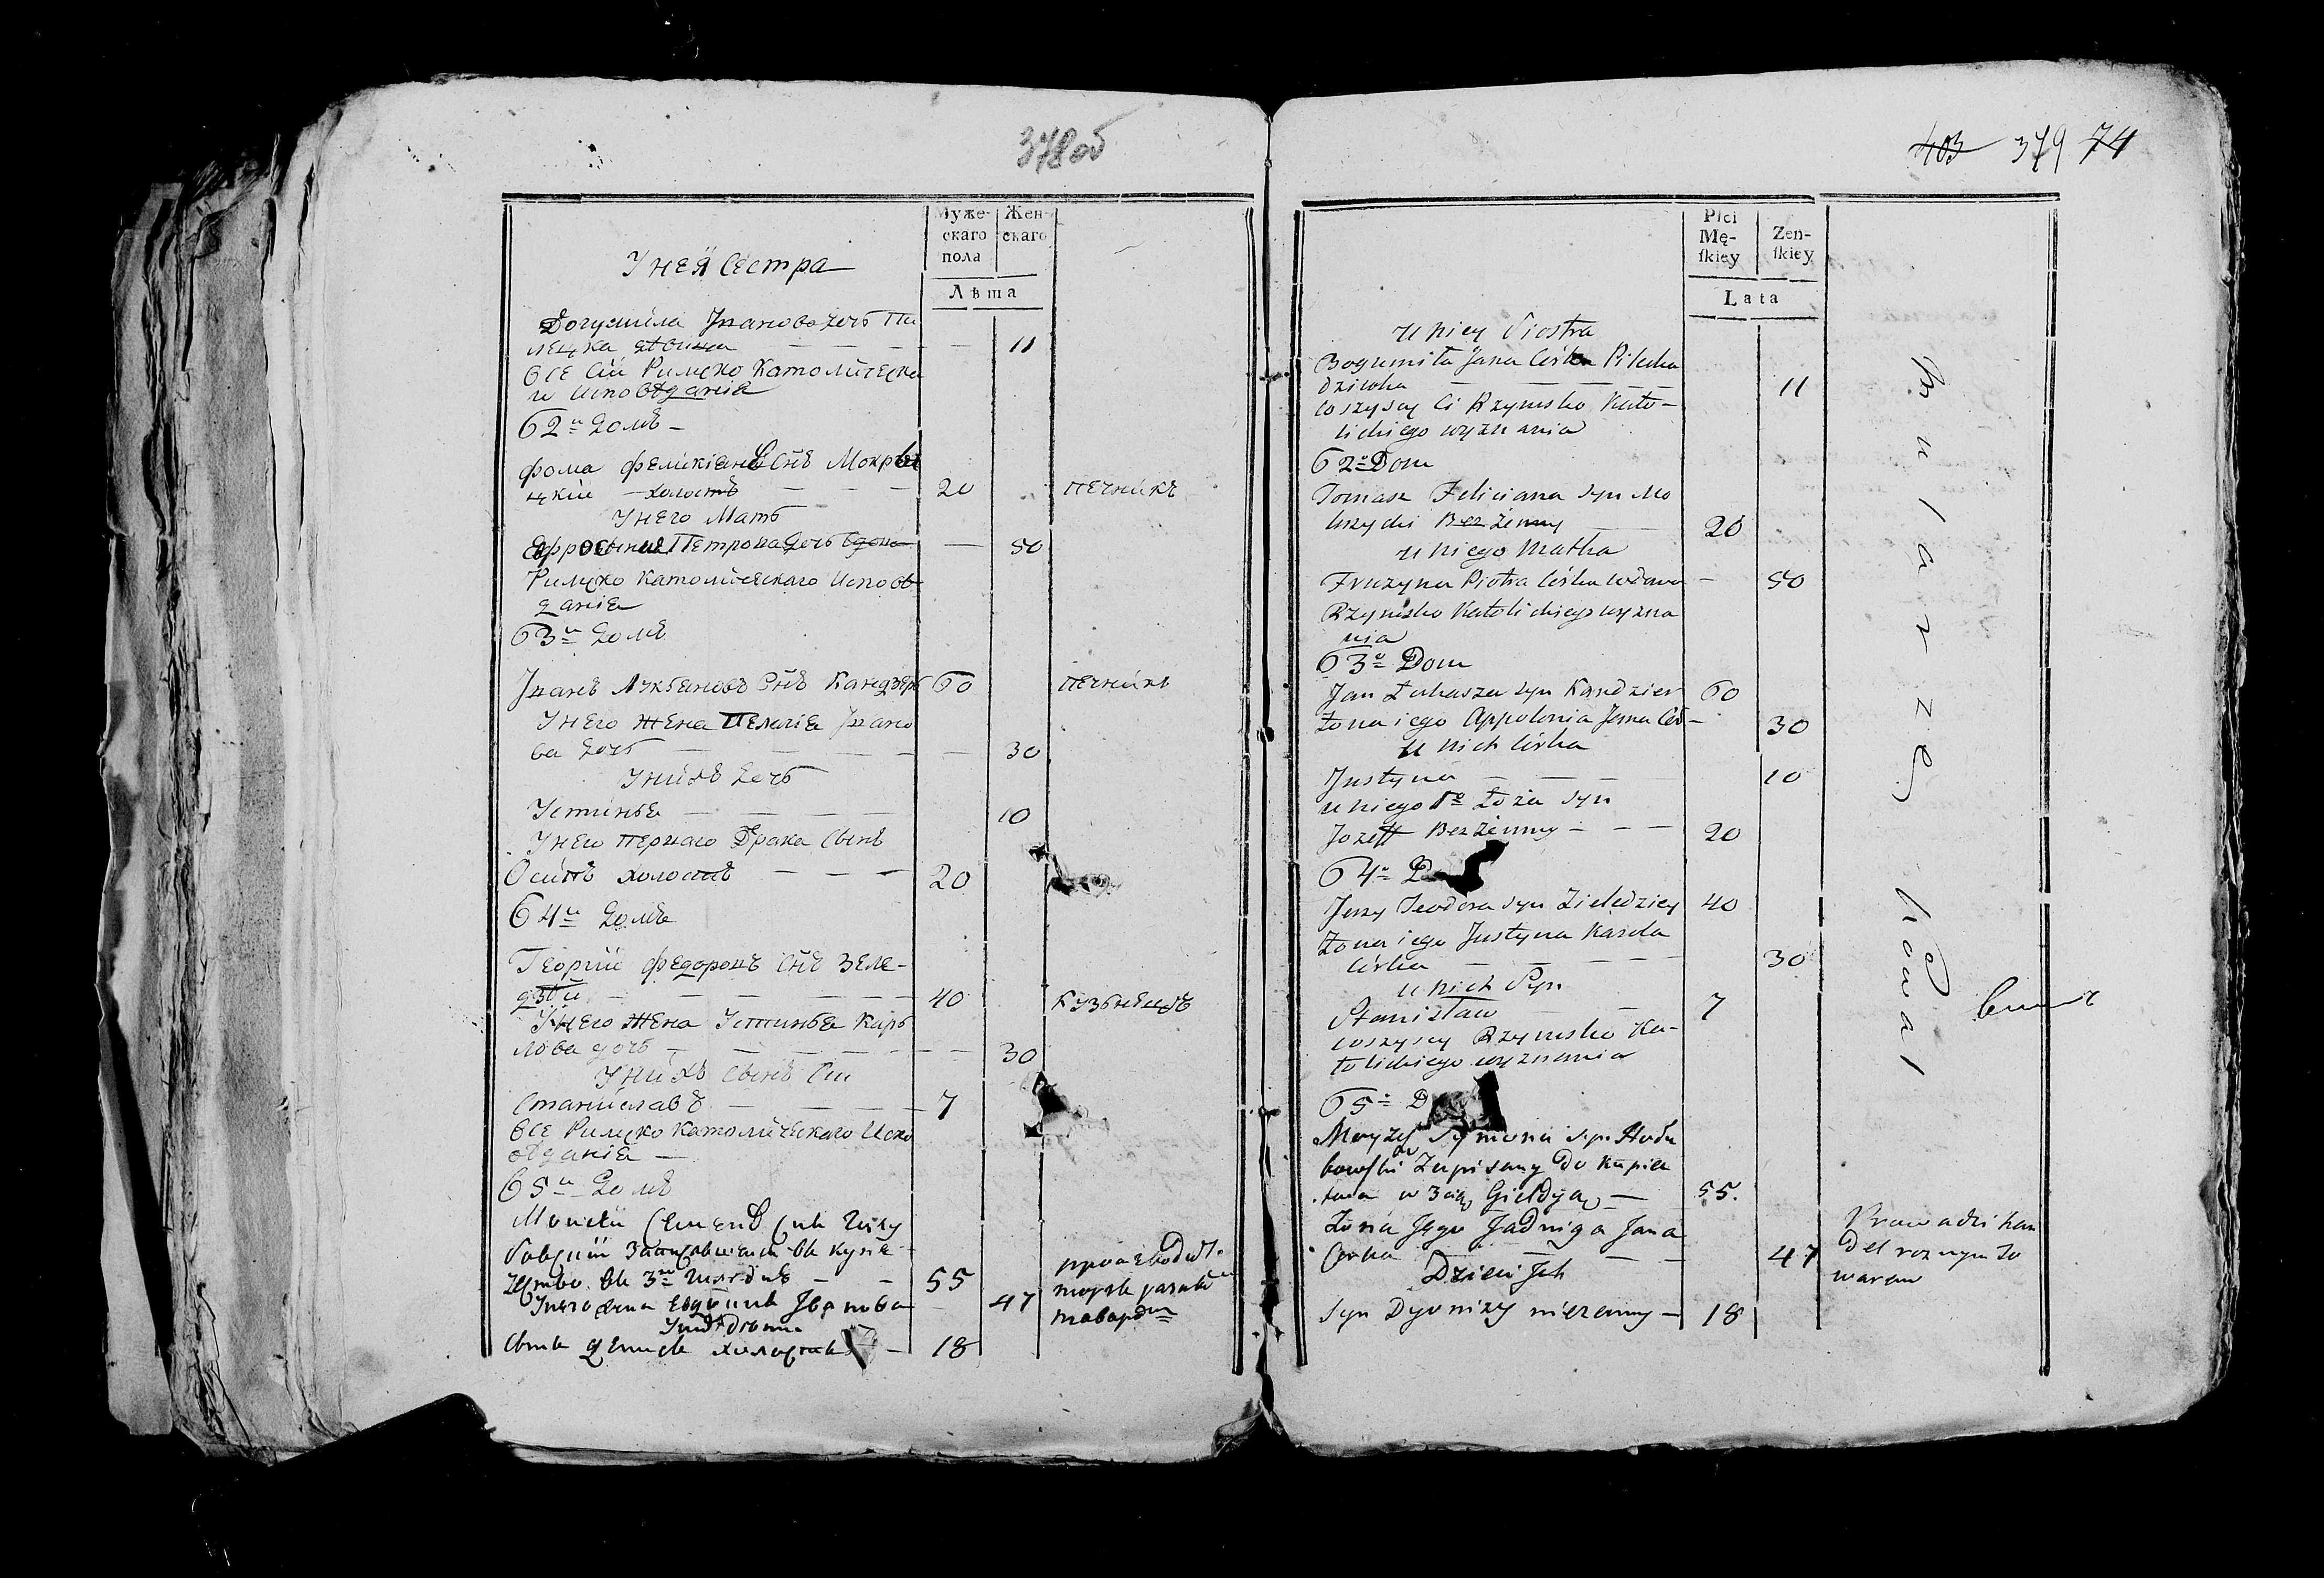 378об
Муже-
скаго
пола
Жен-
скаго
Лѣта
У нея Сестра
Богумила Иванова дочь Пи
лецка девица — — — 11
Все сіи Римско Католическа
и исповѣданія
62й домъ —
Фома Феликіановъ Снъ Мокр
цкій — холостъ — — — 20 печникъ
У него Мать
Ефросинія Петрова дочь вдова — 50
Римско Католическаго Исповѣ
данія
63й домъ
Иванъ Лукьяновъ Снъ Кандзеръ 60 печникъ
У него жена Пелагіе Ивано
ва дочь — — — — 30
У нихъ дочь
Устинья — — — — 10
У него перваго Брака Сынъ
Осипъ холостъ — — — 20
64й домъ
Георгій Федоровъ Снъ Зеле-
дзѣй — — — — — 40 Кузнецъ
У него жена Устинья Кар
лова дочь — — — — — 30
У нихъ Сынъ
Станиславъ — — — 7
Все Римско Католическаго Испо
вѣданія —
65й домъ
Моисей Семеновъ Снъ
записавшійся въ купе
чество въ 3ю гильдию — — 55
У него жена Иванова 47
У нихъ дѣти
Сынъ Денисъ холостъ — 18
производитъ
торгъ разными
товарами
403 379 74
Płci
Mę-
skiey
Żen-
skiey
Lata
u niey Siostra
Bogumiła Jana Córka Pilecka
dziwka — — — — 11
wszyscy Ci Rzymsko Kato-
lickiego wyznania
62o Dom
Tomasz Feliciana syn Mo
krzycki Bez Żenny — 20
u niego Matka
Fruzyna Piotra Córka wdowa — 50
Rzymsko Katolickiego wyzna
nia
63o Dom
Jan Łukasza syn Kandzier 60
Żona iego Appolonia Jana Cór — 30
u nich Córka
Justyna — — — 10
u niego 1o Łoża syn
Jozeff Bez Żenny — — — 20
64o D
Jerzy Teodora syn Zieledziey 40
Żona iego Justyna Karola
Córka — — — — 30
u nich Syn
Stanisław — — 7
wszyscy Rzymsko Ka-
tolickiego wyznania
65o D
Moyżesz Symona syn Hołu
bowski Zapisany do Kupiec
twa w 3cią Gieldyą — 55.
Żona Jego Jadwiga Jana
Corka — — — 47
Dzieci Jch
Syn Dyonizy nieżenny — 18
mularze
kowal
Prowadzi han
del roznym to
warem